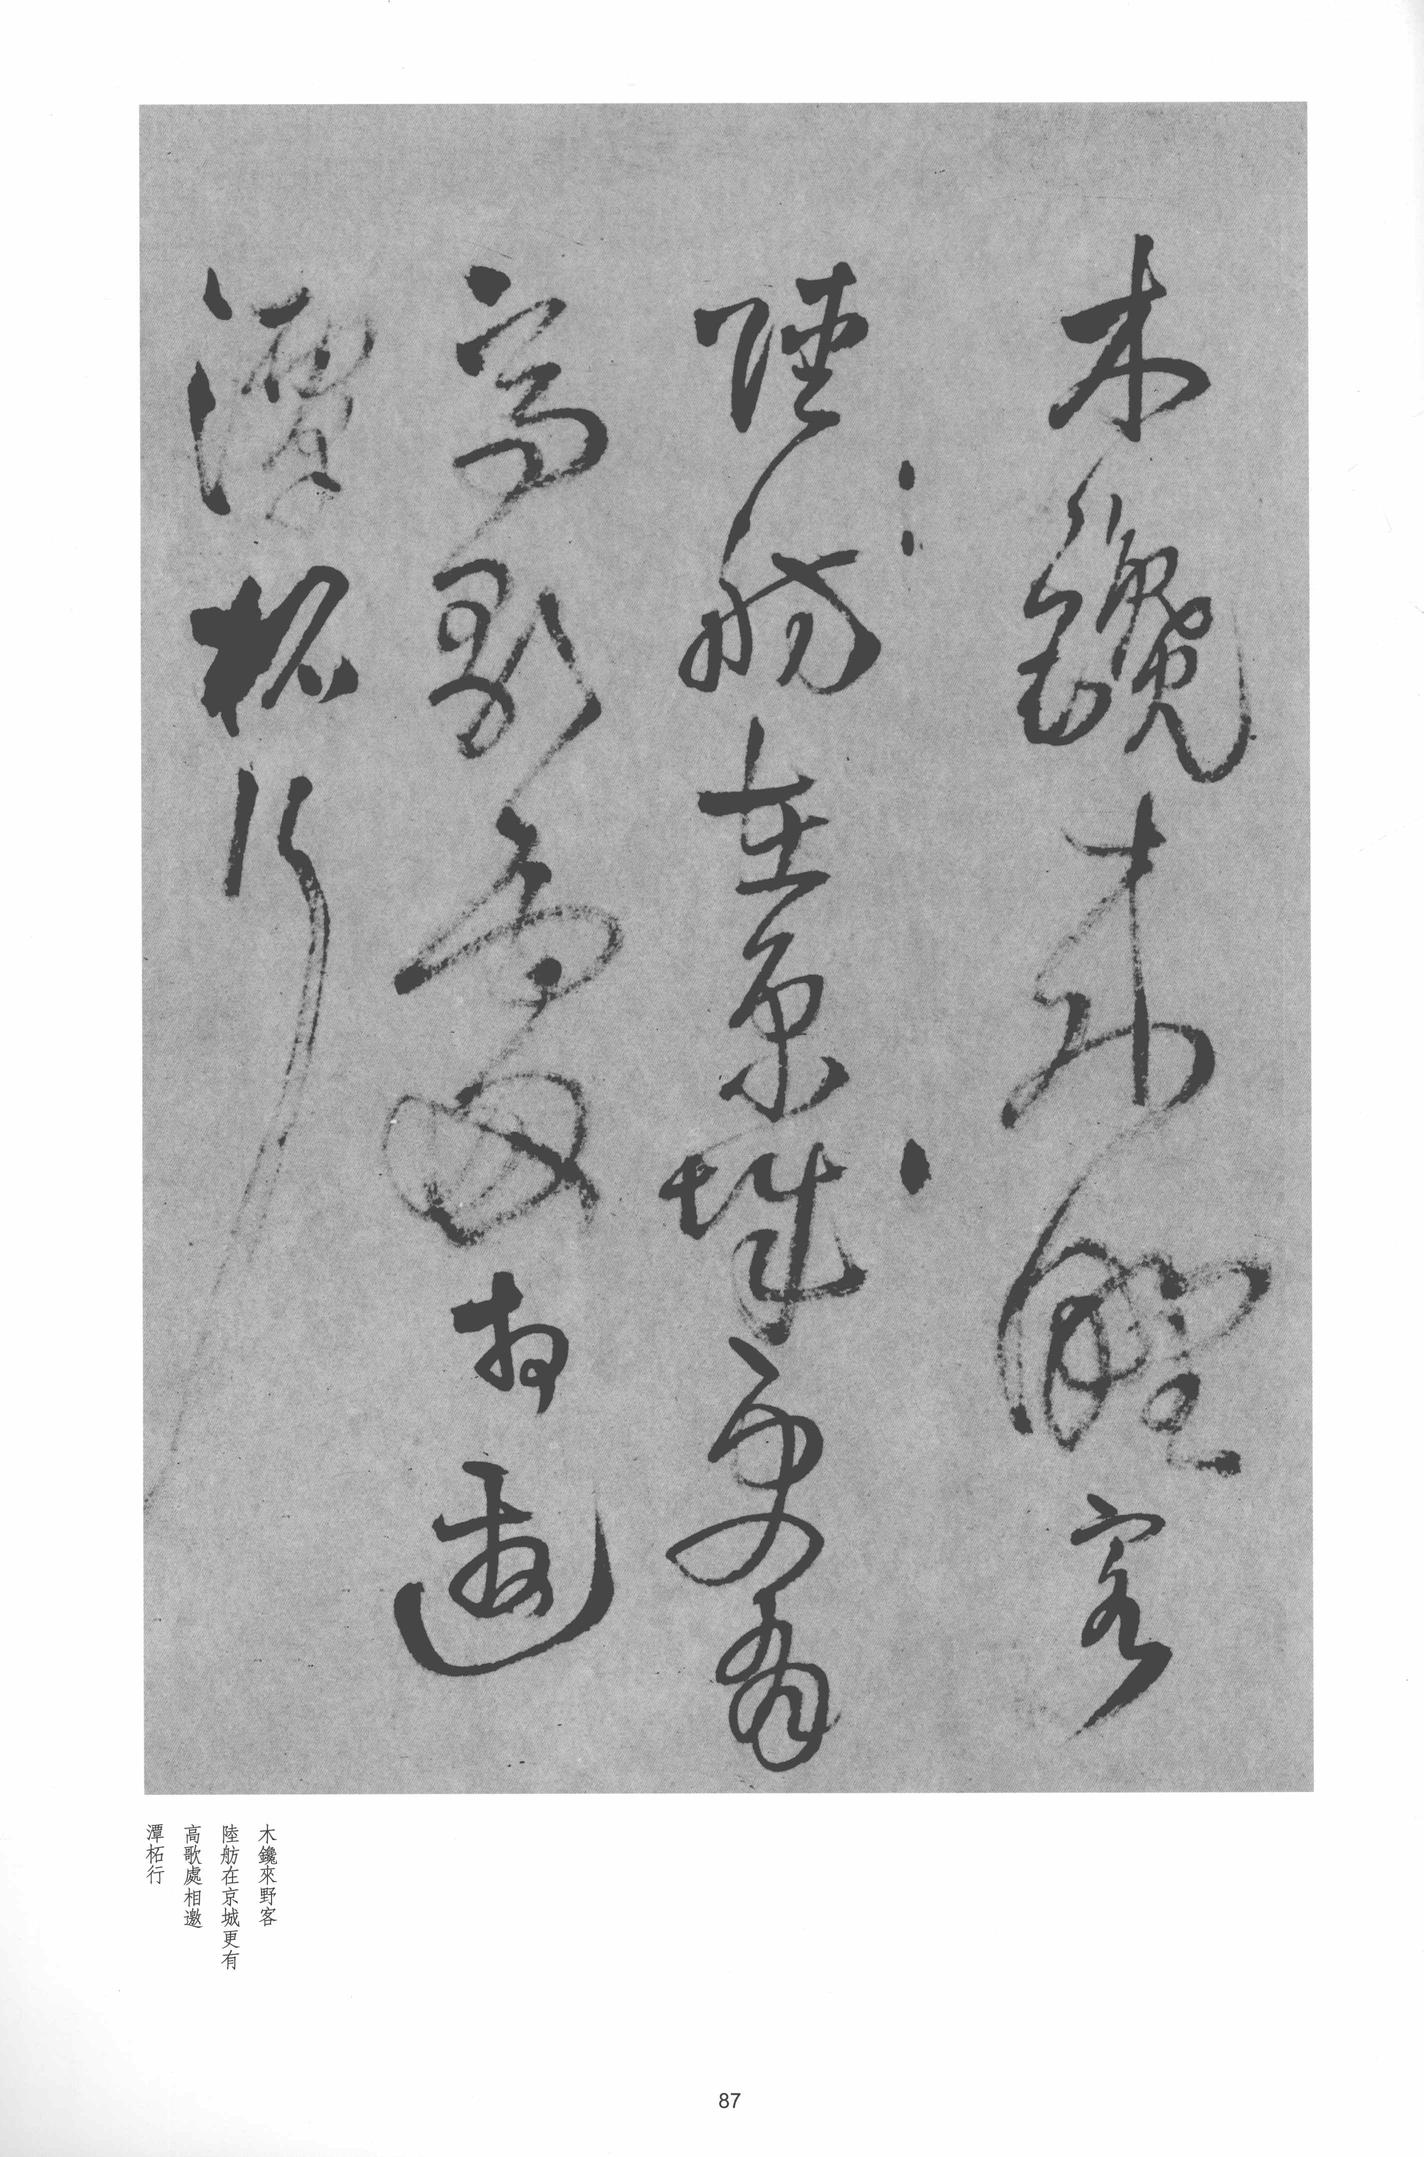 木鑱來野客
陸舫在京城更有
高歌處相邀
潭柘行
木鑱來野客
陸舫在京城更有
高歌處相邀
潭柘行
87